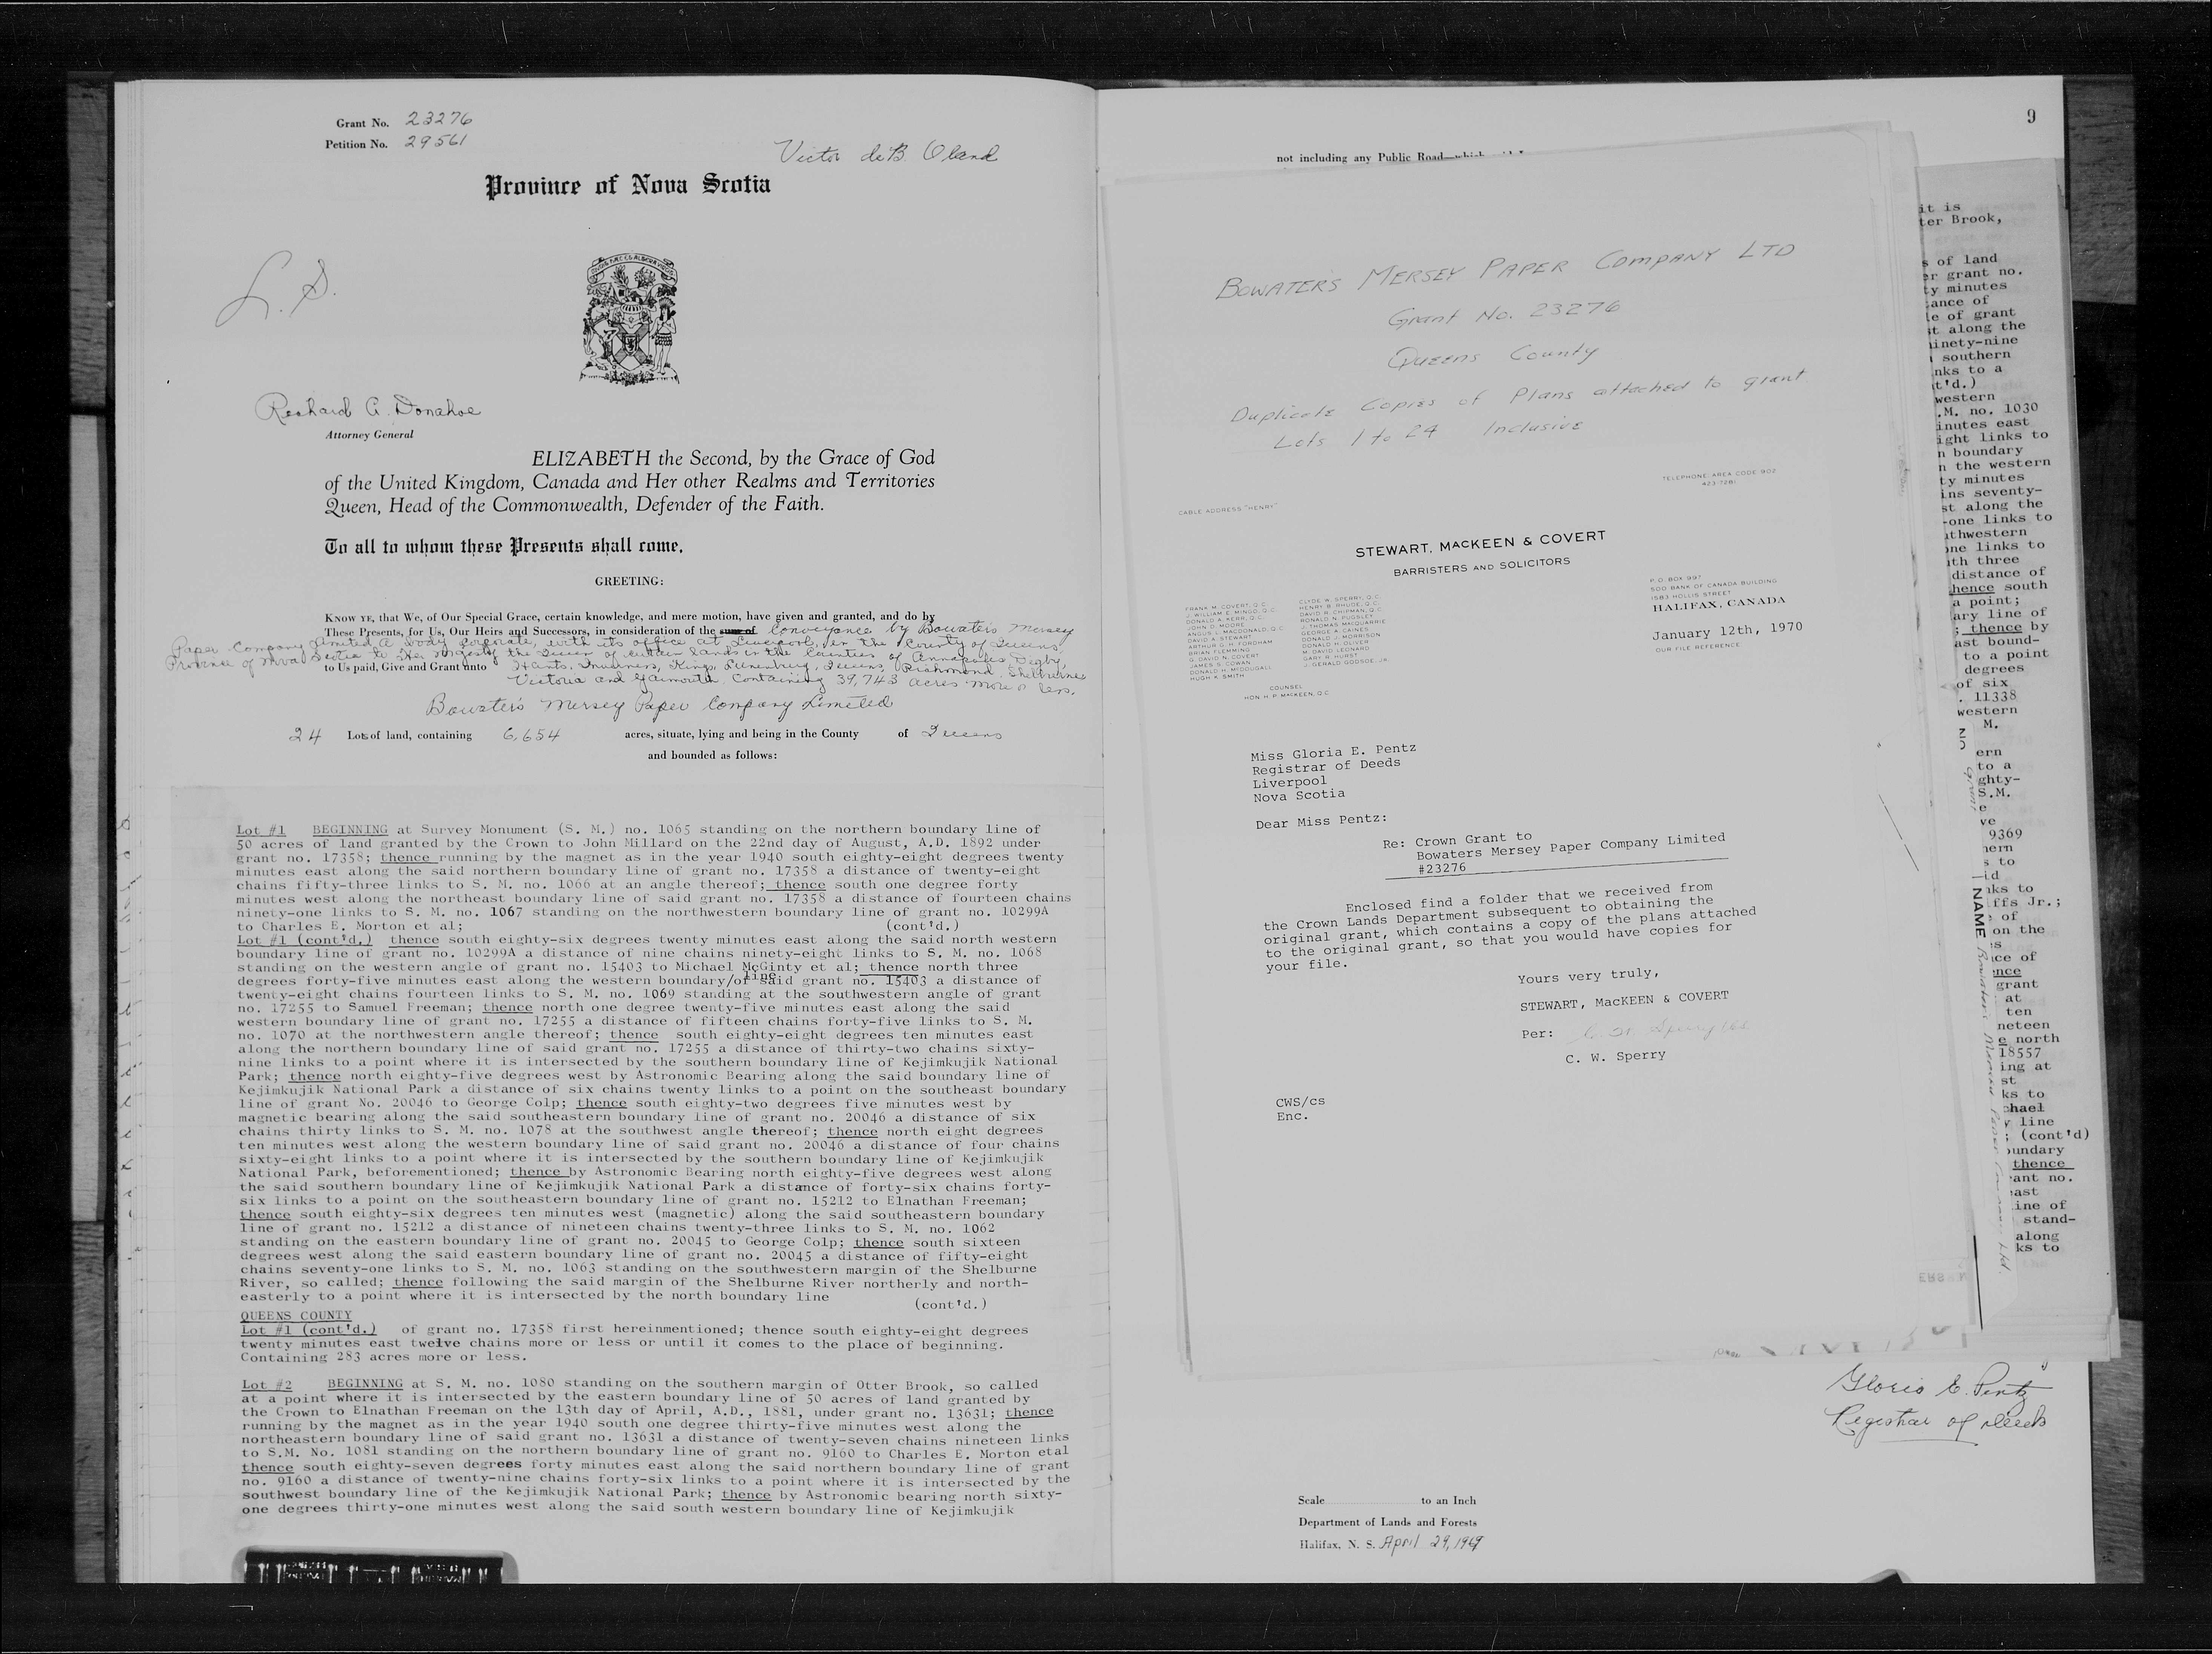 Grant No. 23276
Petition No. 29561
Victor deB. Oland
Province of Nova Scotia
L.S.
Richard A. Donahoe
Attorney General
ELIZABETH the Second, by the Grace of God
of the United Kingdom, Canada and Her other Realms and Territories
Queen, Head of the Commonwealth, Defender of the Faith.
To all to whom these Presents shall come,
GREETING:
KNOW YE, that We, of Our Special Grace, certain knowledge, and mere motion, have given and granted, and do by
These Presents, for Us, Our Heirs and Successors, in consideration of the sum of Conveyance by Bowaters Mersey
Paper Company Limited, a body corporate, with its office at Liverpool, in the County of Queens,
Province of Nova Scotia to Her Majesty the Queen of certain lands in the Counties of Annapolis, Digby,
to Us paid, Give and Grant unto Hants, Inverness, Kings, Lunenburg, Queens, Richmond, Shelburne
Victoria and Yarmouth, Containing 39,743 acres more or less,
Bowaters Mersey Paper Company Limited
24 Lots of land, containing 6,654 acres, situate, lying and being in the County of Queens
and bounded as follows:
Lot #1 BEGINNING at Survey Monument (S. M.) no. 1065 standing on the northern boundary line of
50 acres of land granted by the Crown to John Millard on the 22nd day of August, A.D. 1892 under
grant no. 17358; thence running by the magnet as in the year 1940 south eighty-eight degrees twenty
minutes east along the said northern boundary line of grant no. 17358 a distance of twenty-eight
chains fifty-three links to S. M. no. 1066 at an angle thereof; thence south one degree forty
minutes west along the northeast boundary line of said grant no. 17358 a distance of fourteen chains
ninety-one links to S. M. no. 1067 standing on the northwestern boundary line of grant no. 10299A
to Charles E. Morton et al; (cont'd.)
Lot #1 (cont'd.) thence south eighty-six degrees twenty minutes east along the said north western
boundary line of grant no. 10299A a distance of nine chains ninety-eight links to S. M. no. 1068
standing on the western angle of grant no. 15403 to Michael McGinty et al; thence north three
line
degrees forty-five minutes east along the western boundary/of said grant no. 15403 a distance of
twenty-eight chains fourteen links to S. M. no. 1069 standing at the southwestern angle of grant
no. 17255 to Samuel Freeman; thence north one degree twenty-five minutes east along the said
western boundary line of grant no. 17255 a distance of fifteen chains forty-five links to S. M.
no. 1070 at the northwestern angle thereof; thence south eighty-eight degrees ten minutes east
along the northern boundary line of said grant no. 17255 a distance of thirty-two chains sixty-
nine links to a point where it is intersected by the southern boundary line of Kejimkujik National
Park; thence north eighty-five degrees west by Astronomic Bearing along the said boundary line of
Kejimkujik National Park a distance of six chains twenty links to a point on the southeast boundary
line of grant No. 20046 to George Colp; thence south eighty-two degrees five minutes west by
magnetic bearing along the said southeastern boundary line of grant no. 20046 a distance of six
chains thirty links to S. M. no. 1078 at the southwest angle thereof; thence north eight degrees
ten minutes west along the western boundary line of said grant no. 20046 a distance of four chains
sixty-eight links to a point where it is intersected by the southern boundary line of Kejimkujik
National Park, beforementioned; thence by Astronomic Bearing north eighty-five degrees west along
the said southern boundary line of Kejimkujik National Park a distance of forty-six chains forty-
six links to a point on the southeastern boundary line of grant no. 15212 to Elnathan Freeman;
thence south eighty-six degrees ten minutes west (magnetic) along the said southeastern boundary
line of grant no. 15212 a distance of nineteen chains twenty-three links to S. M. no. 1062
standing on the eastern boundary line of grant no. 20045 to George Colp; thence south sixteen
degrees west along the said eastern boundary line of grant no. 20045 a distance of fifty-eight
chains seventy-one links to S. M. no. 1063 standing on the southwestern margin of the Shelburne
River, so called; thence following the said margin of the Shelburne River northerly and north-
easterly to a point where it is intersected by the north boundary line (cont'd.)
QUEENS COUNTY
Lot #1 (cont'd.) of grant no. 17358 first hereinmentioned; thence south eighty-eight degrees
twenty minutes east twelve chains more or less or until it comes to the place of beginning.
Containing 283 acres more or less.
Lot #2 BEGINNING at S. M. no. 1080 standing on the southern margin of Otter Brook, so called
at a point where it is intersected by the eastern boundary line of 50 acres of land granted by
the Crown to Elnathan Freeman on the 13th day of April, A.D., 1881, under grant no. 13631; thence
running by the magnet as in the year 1940 south one degree thirty-five minutes west along the
northeastern boundary line of said grant no. 13631 a distance of twenty-seven chains nineteen links
to S.M. No. 1081 standing on the northern boundary line of grant no. 9160 to Charles E. Morton etal
thence south eighty-seven degrees forty minutes east along the said northern boundary line of grant
no. 9160 a distance of twenty-nine chains forty-six links to a point where it is intersected by the
southwest boundary line of the Kejimkujik National Park; thence by Astronomic bearing north sixty-
one degrees thirty-one minutes west along the said south western boundary line of Kejimkujik
9
not including any Public Road
BOWATERS MERSEY PAPER COMPANY LTD
Grant No. 23276
Queens County
Duplicate Copies of Plans attached to grant
Lots 1 to 24 Inclusive
TELEPHONE: AREA CODE 902
423-7281
CABLE ADDRESS "HENRY"
STEWART, MACKEEN & COVERT
BARRISTERS AND SOLICITORS
P.O. BOX 997
500 BANK OF CANADA BUILDING
1583 HOLLIS STREET
HALIFAX, CANADA
FRANK M. COVERT, Q.C.
J. WILLIAM E. MINGO, Q.C.
DONALD A. KERR, Q.C.
JOHN D. MOORE
ANGUS L. MACDONALD, Q.C.
DAVID A. STEWART
ARTHUR G. H. FORDHAM
BRIAN FLEMMING
G. DAVID N. COVERT
JAMES S. COWAN
DONALD H. McDOUGALL
HUGH K. SMITH
CLYDE W. SPERRY, Q.C.
HENRY B. RHUDE, Q.C.
DAVID R. CHIPMAN, Q.C.
RONALD N. PUGSLEY
J. THOMAS MACQUARRIE
GEORGE A. CAINES
DONALD J. MORRISON
DONALD H. OLIVER
M. DAVID LEONARD
GARY R. HURST
J. GERALD GODSOE, JR.
COUNSEL
HON. H. P. MACKEEN, Q.C.
January 12th, 1970
OUR FILE REFERENCE
Miss Gloria E. Pentz
Registrar of Deeds
Liverpool
Nova Scotia
Dear Miss Pentz:
Re: Crown Grant to
Bowaters Mersey Paper Company Limited
#23276
Enclosed find a folder that we received from
the Crown Lands Department subsequent to obtaining the
original grant, which contains a copy of the plans attached
to the original grant, so that you would have copies for
your file.
Yours very truly,
STEWART, MacKEEN & COVERT
Per:
C. W. Sperry
CWS/cs
Enc.
it is
ter Brook,
s of land
er grant no.
ty minutes
tance of
le of grant
st along the
ninety-nine
southern
nks to a
t'd.)
western
.M. no. 1030
inutes east
ight links to
n boundary
n the western
ty minutes
ins seventy-
st along the
-one links to
thwestern
one links to
th three
distance of
hence south
a point;
ary line of
; thence by
ast bound-
to a point
degrees
of six
. 11338
western
M.
ern
to a
ghty-
S.M.
e
ve
9369
hern
s to
id
nks to
iffs Jr.;
of
on the
es
nce of
ence
grant
at
ten
neteen
e north
18557
ing at
st
ks to
chael
y line
; (cont'd)
oundary
thence
ant no.
east
ine of
stand-
along
ks to
NO
grant
NAME Bowaters Mersey Paper Company Ltd.
Gloria E. Pentz
Registrar of Deeds
Scale to an Inch
Department of Lands and Forests
Halifax, N. S. April 29, 1969